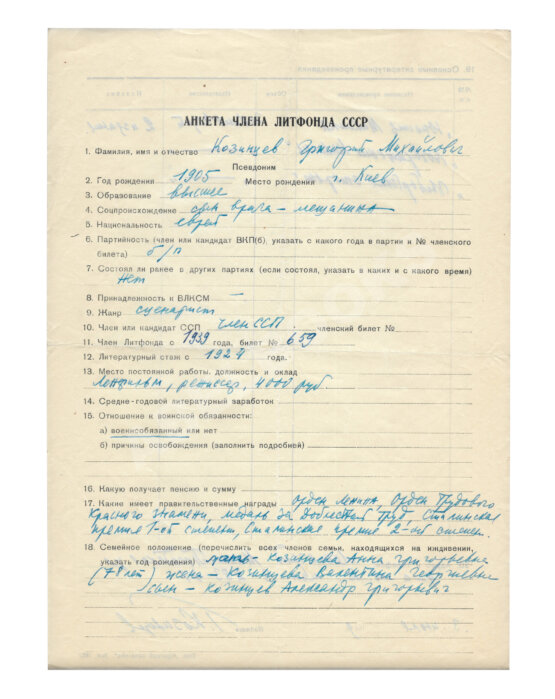 АНКЕТА ЧЛЕНА ЛИТФОНДА СССР
1. Фамилия, имя и отчество Козинцев Григорий Михайлович
Псевдоним
2. Год рождения 1905 Место рождения г. Киев
3. Образование высшее
4. Соцпроисхождение сын врача – мещанина
5. Национальность еврей
6. Партийность (член или кандидат ВКП(б), указать с какого года в партии и № членского
билета) б/п
7. Состоял ли ранее в других партиях (если состоял, указать в каких и с какого время)
Нет
8. Принадлежность к ВЛКСМ —
9. Жанр сценарист
10. Член или кандидат ССП член ССП. членский билет №
11. Член Литфонда с 1939 года, билет № 659
12. Литературный стаж с 1924 года.
13. Место постоянной работы, должность и оклад
Ленфильм, режиссер, 4000 руб.
14. Средне-годовой литературный заработок
15. Отношение к воинской обязанности:
а) военнообязанный или нет
б) причины освобождения (заполнить подробней)
16. Какую получает пенсию и сумму
17. Какие имеет правительственные награды орден Ленина, Орден Трудового
Красного Знамени, медаль за Доблестный труд, Сталинская
премия 1-ой степени, Сталинская премия 2-ой степен.
18 Семейное положение (перечислить всех членов семьи, находящихся на иждивении,
указать год рождения) мать – Козинцева Анна Григорьевна
(78 лет) жена – Козинцева Валентина Георгиевна
сын – Козинцев Александр Григорьевич